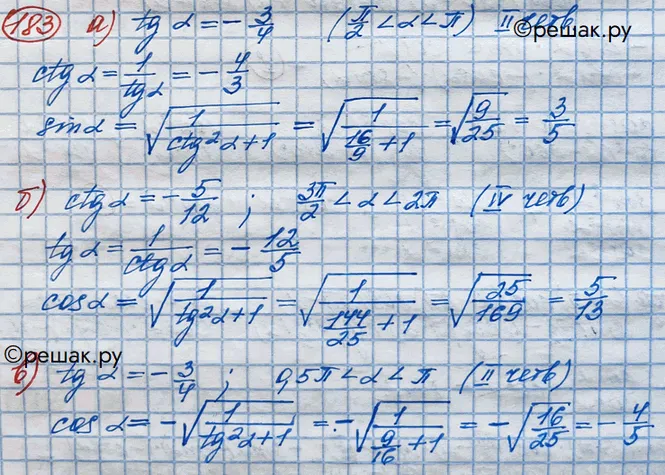 183 а) tg α = - 3/4 (π/2 < α < π) II четв
©решак.ру
ctg α = 1/tg α = - 4/3
sin α = √(1/(ctg² α + 1)) = √(1/(16/9 + 1)) = √(9/25) = 3/5
б) ctg α = - 5/12 ; 3π/2 < α < 2π (IV четв)
tg α = 1/ctg α = - 12/5
cos α = √(1/(tg² α + 1)) = √(1/(144/25 + 1)) = √(25/169) = 5/13
©решак.ру
в) tg α = - 3/4 ; 0,5π < α < π (II четв)
cos α = - √(1/(tg² α + 1)) = - √(1/(9/16 + 1)) = - √(16/25) = - 4/5